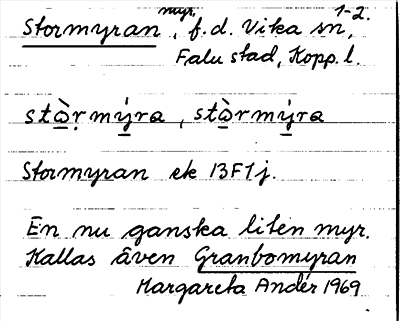 Stormyran myr, f.d. Vika sn, 1-2.
Falu stad, Kopp. l.
stò̲ṛmý̲ra, stò̲rmý̲ra
Stormyran ek 13F1j.
En nu ganska liten myr.
Kallas även Granbomyran
Margareta Andér 1969